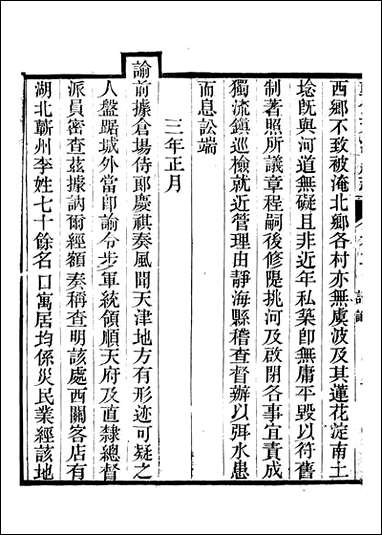 西鄉不致被淹北鄉各村亦無虞波及其蓮花淀南土
埝旣與河道無礙且非近年私築卽無庸平毀以符舊
制著照所議章程嗣後修隄挑河及啟閉各事宜責成
獨流鎮巡檢就近管理由靜海縣稽查督辦以弭水患
而息訟端
三年正月
諭前據倉場侍郎慶祺奏風聞天津地方有形迹可疑之
人盤踞城外當卽諭令步軍統領順天府及直隸總督
派員密查茲據訥爾經額奏稱查明該處西關客店有
湖北蘄州李姓七十餘名口寓居均係災民業經該地